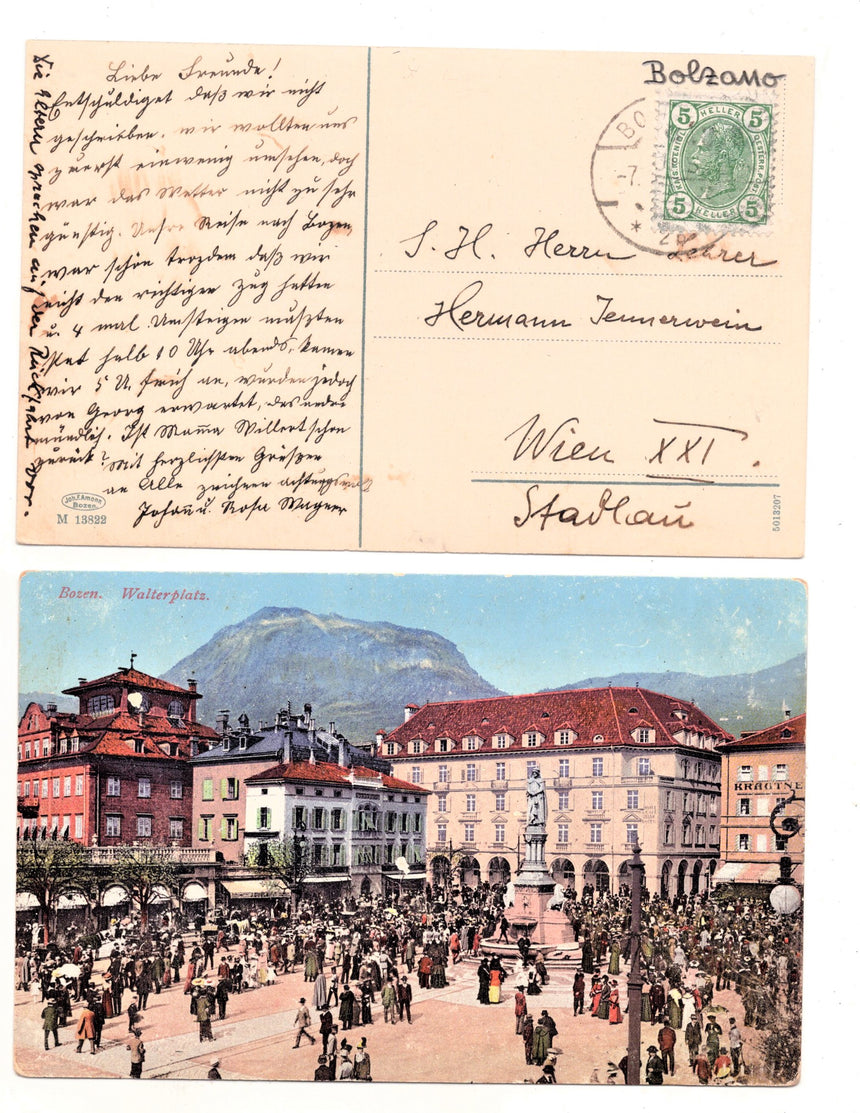 Liebe Freunde!
Entschuldiget daß wir nicht
geschrieben. wir wollten uns
zuerst einwenig umsehen, doch
war das Wetter nicht zu sehr
günstig. Unsre Reise nach Bozen
war schön trozdem daß wir
nicht den richtigen Zug hatten
u. 4 mal Umsteigen mußten
statt halb 10 Uhr abends, kamen
wir 5 U. früh an, wurden jedoch
von Georg erwartet, das andre
mündlich. Ist Mama Willert schon
zurück? Mit herzlichsten Grüßen
an Alle zeichnen achtungsvoll
Johann u. Rosa Wagner
Die Eltern sprechen auf der Rückfahrt vor.
Joh. F. Amonn
Bozen.
M 13822
Bolzano
BO
-7.
5 HELLER 5
KAIS. KOENIGL. OESTERR. POST
5 HELLER 5
S. H. Herrn Lehrer
Hermann Jennerwein
Wien XXI.
Stadlau
5013207
Bozen. Walterplatz.
KRAUTNE